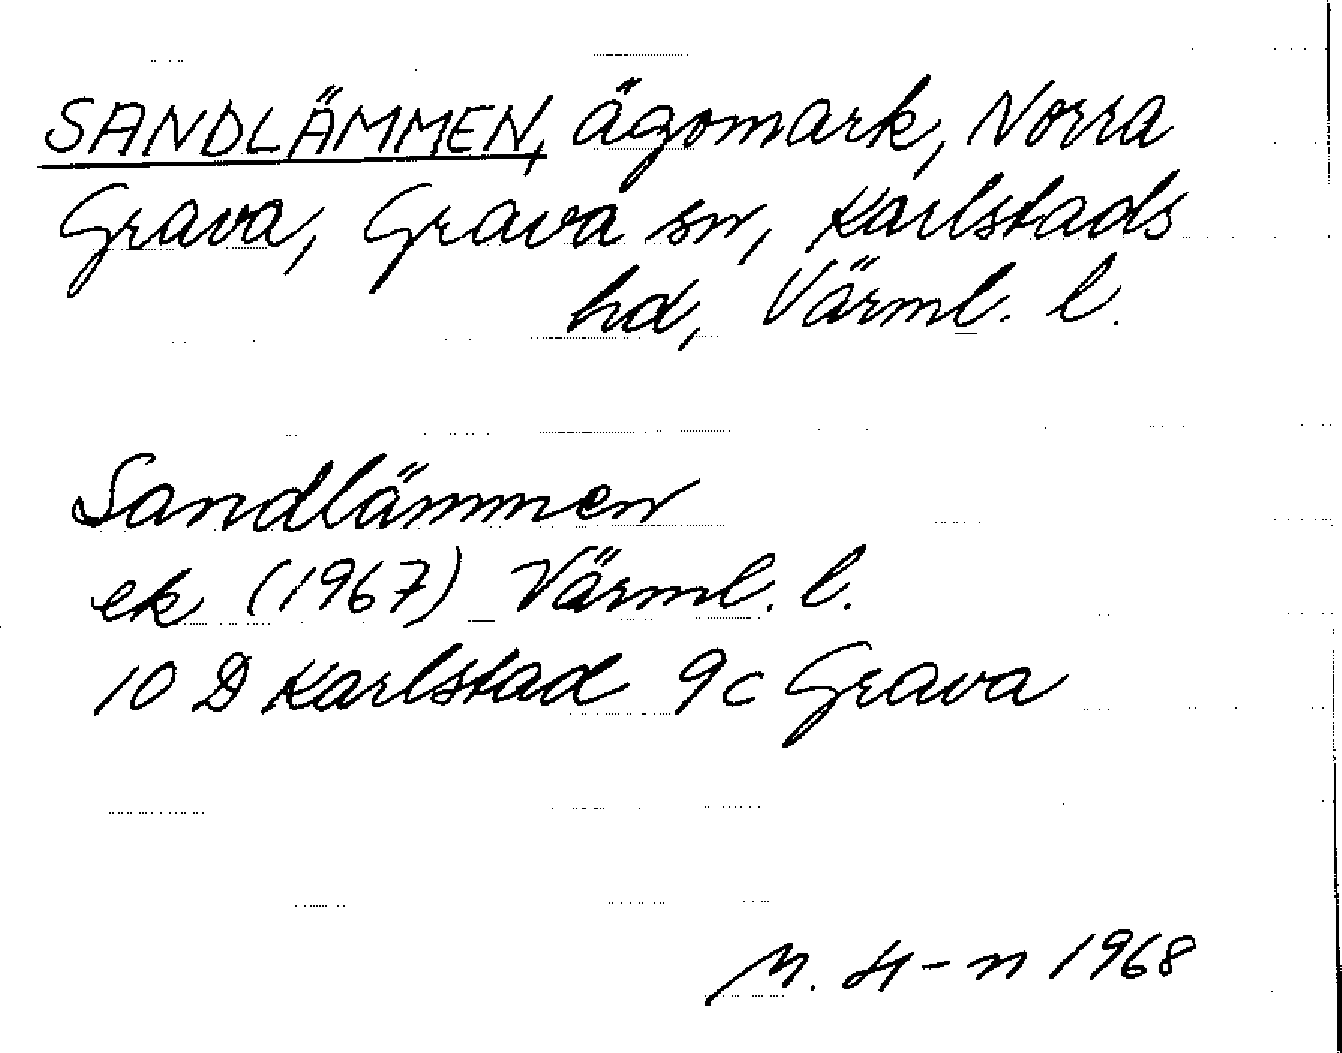 SANDLÄMMEN, ägomark, Norra
Grava, Grava sn, Karlstads
hd, Värml. l.
Sandlämmen
ek (1967) Värml. l.
10 D Karlstad 9c Grava
M. H-n 1968